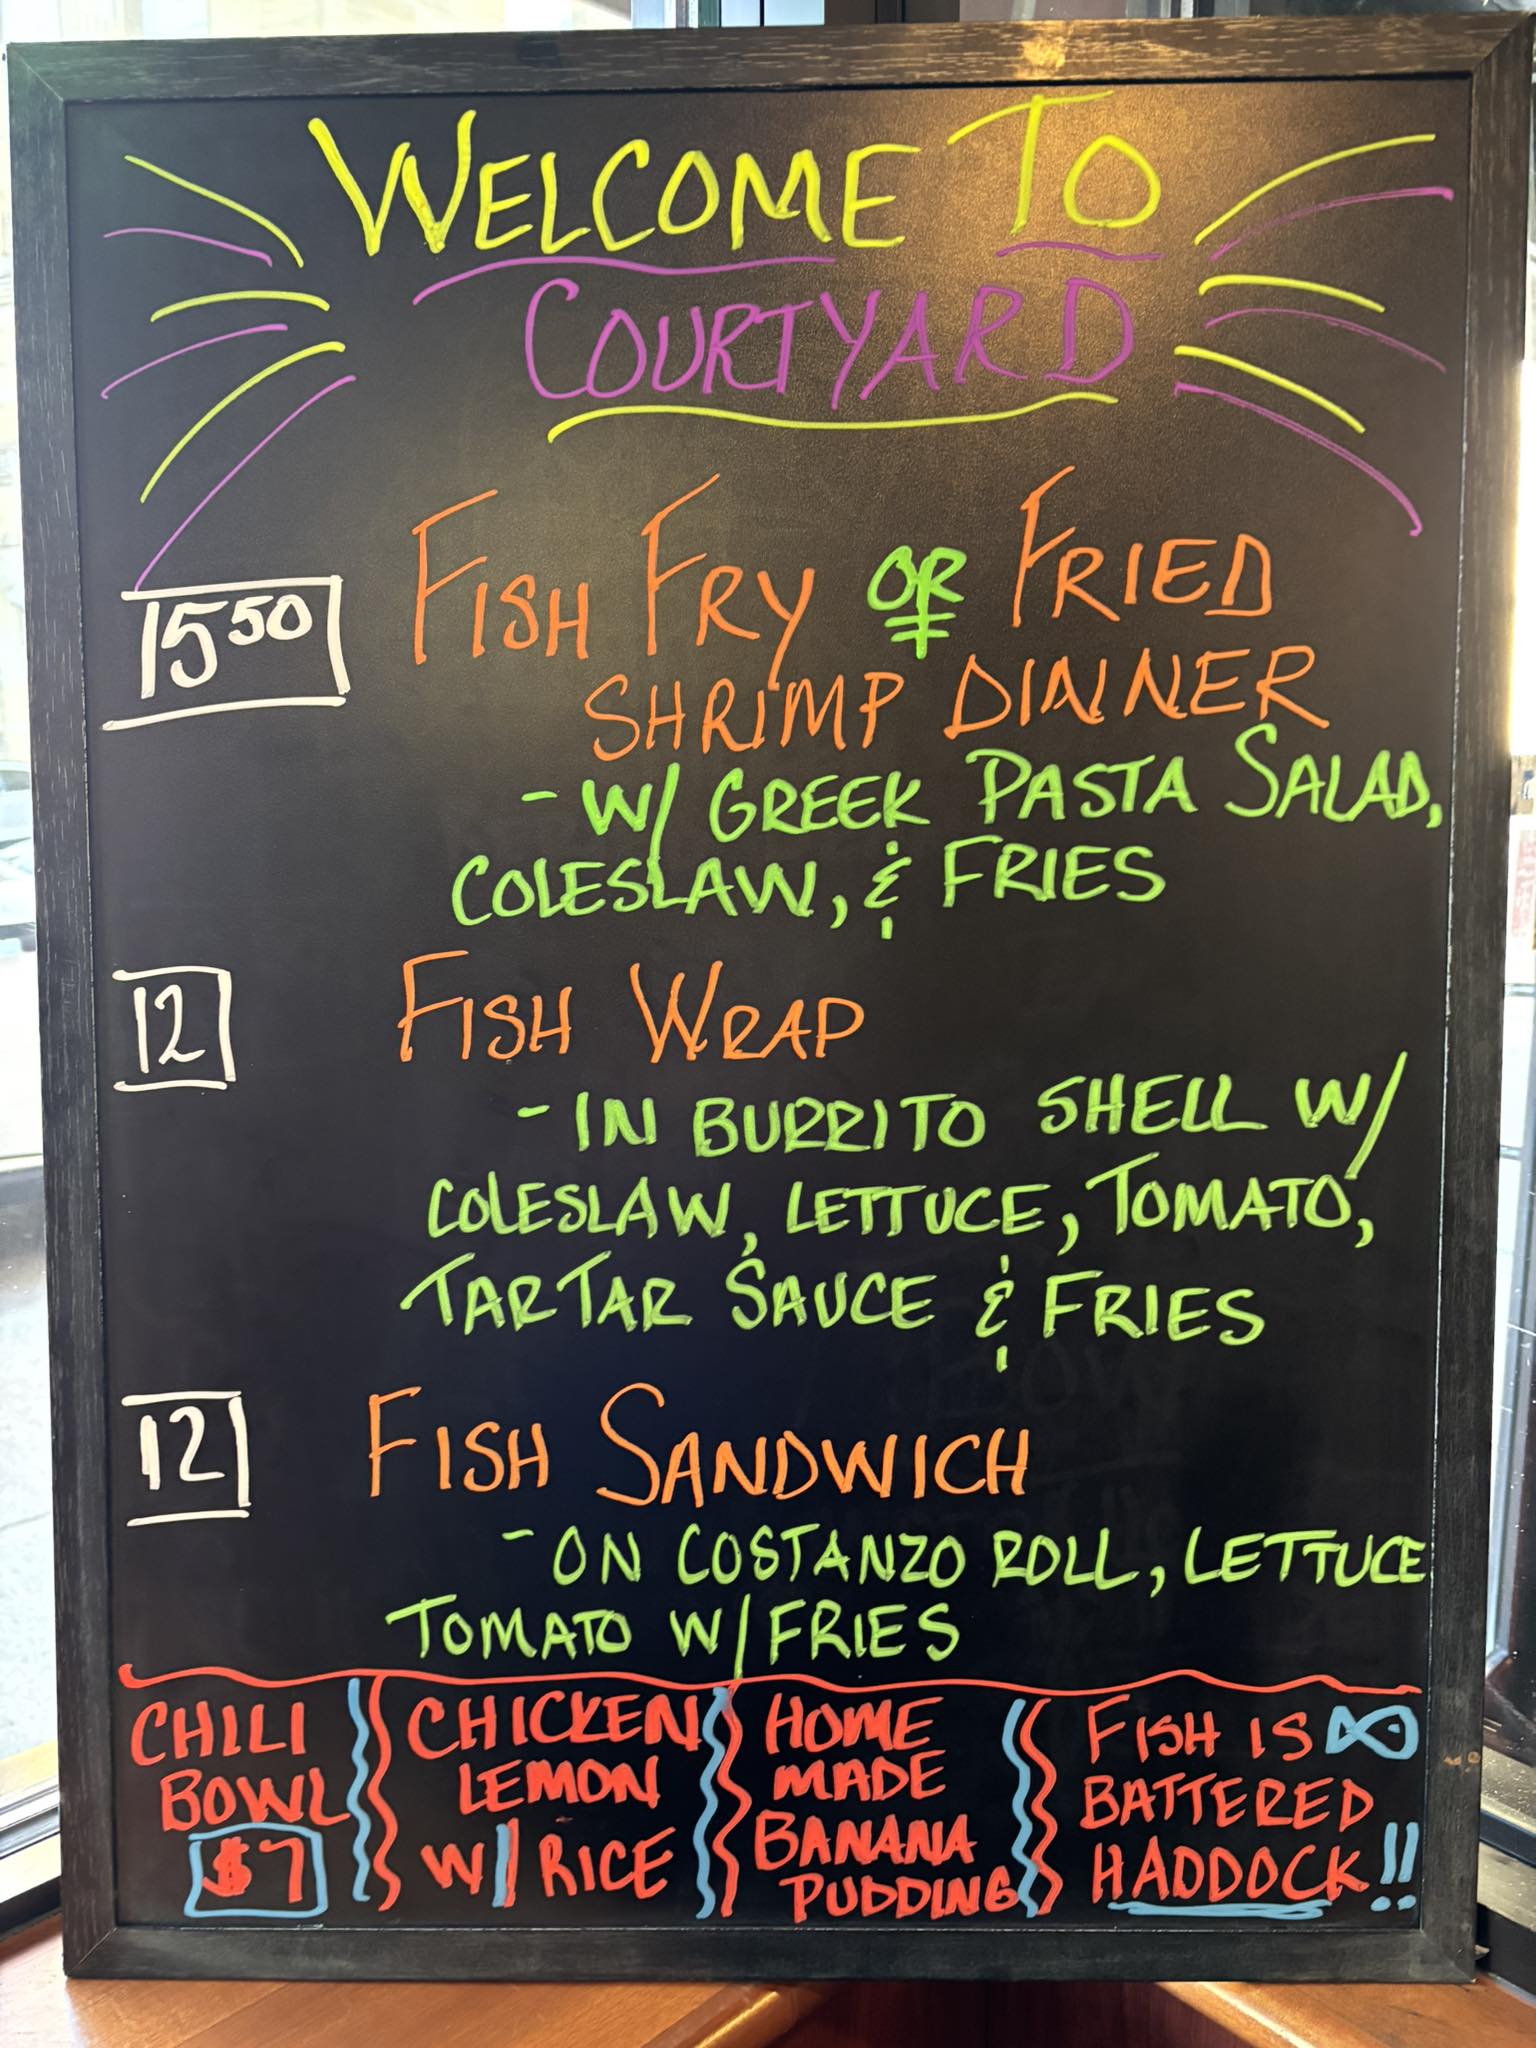 WELCOME TO
COURTYARD
15.50
FISH FRY OR FRIED
SHRIMP DINNER
- W/ GREEK PASTA SALAD,
COLESLAW, & FRIES
12
FISH WRAP
- IN BURRITO SHELL W/
COLESLAW, LETTUCE, TOMATO,
TARTAR SAUCE & FRIES
12
FISH SANDWICH
- ON COSTANZO ROLL, LETTUCE
TOMATO W/ FRIES
CHILI
BOWL
$7
CHICKEN
LEMON
W/ RICE
HOME
MADE
BANANA
PUDDING
FISH IS
BATTERED
HADDOCK!!